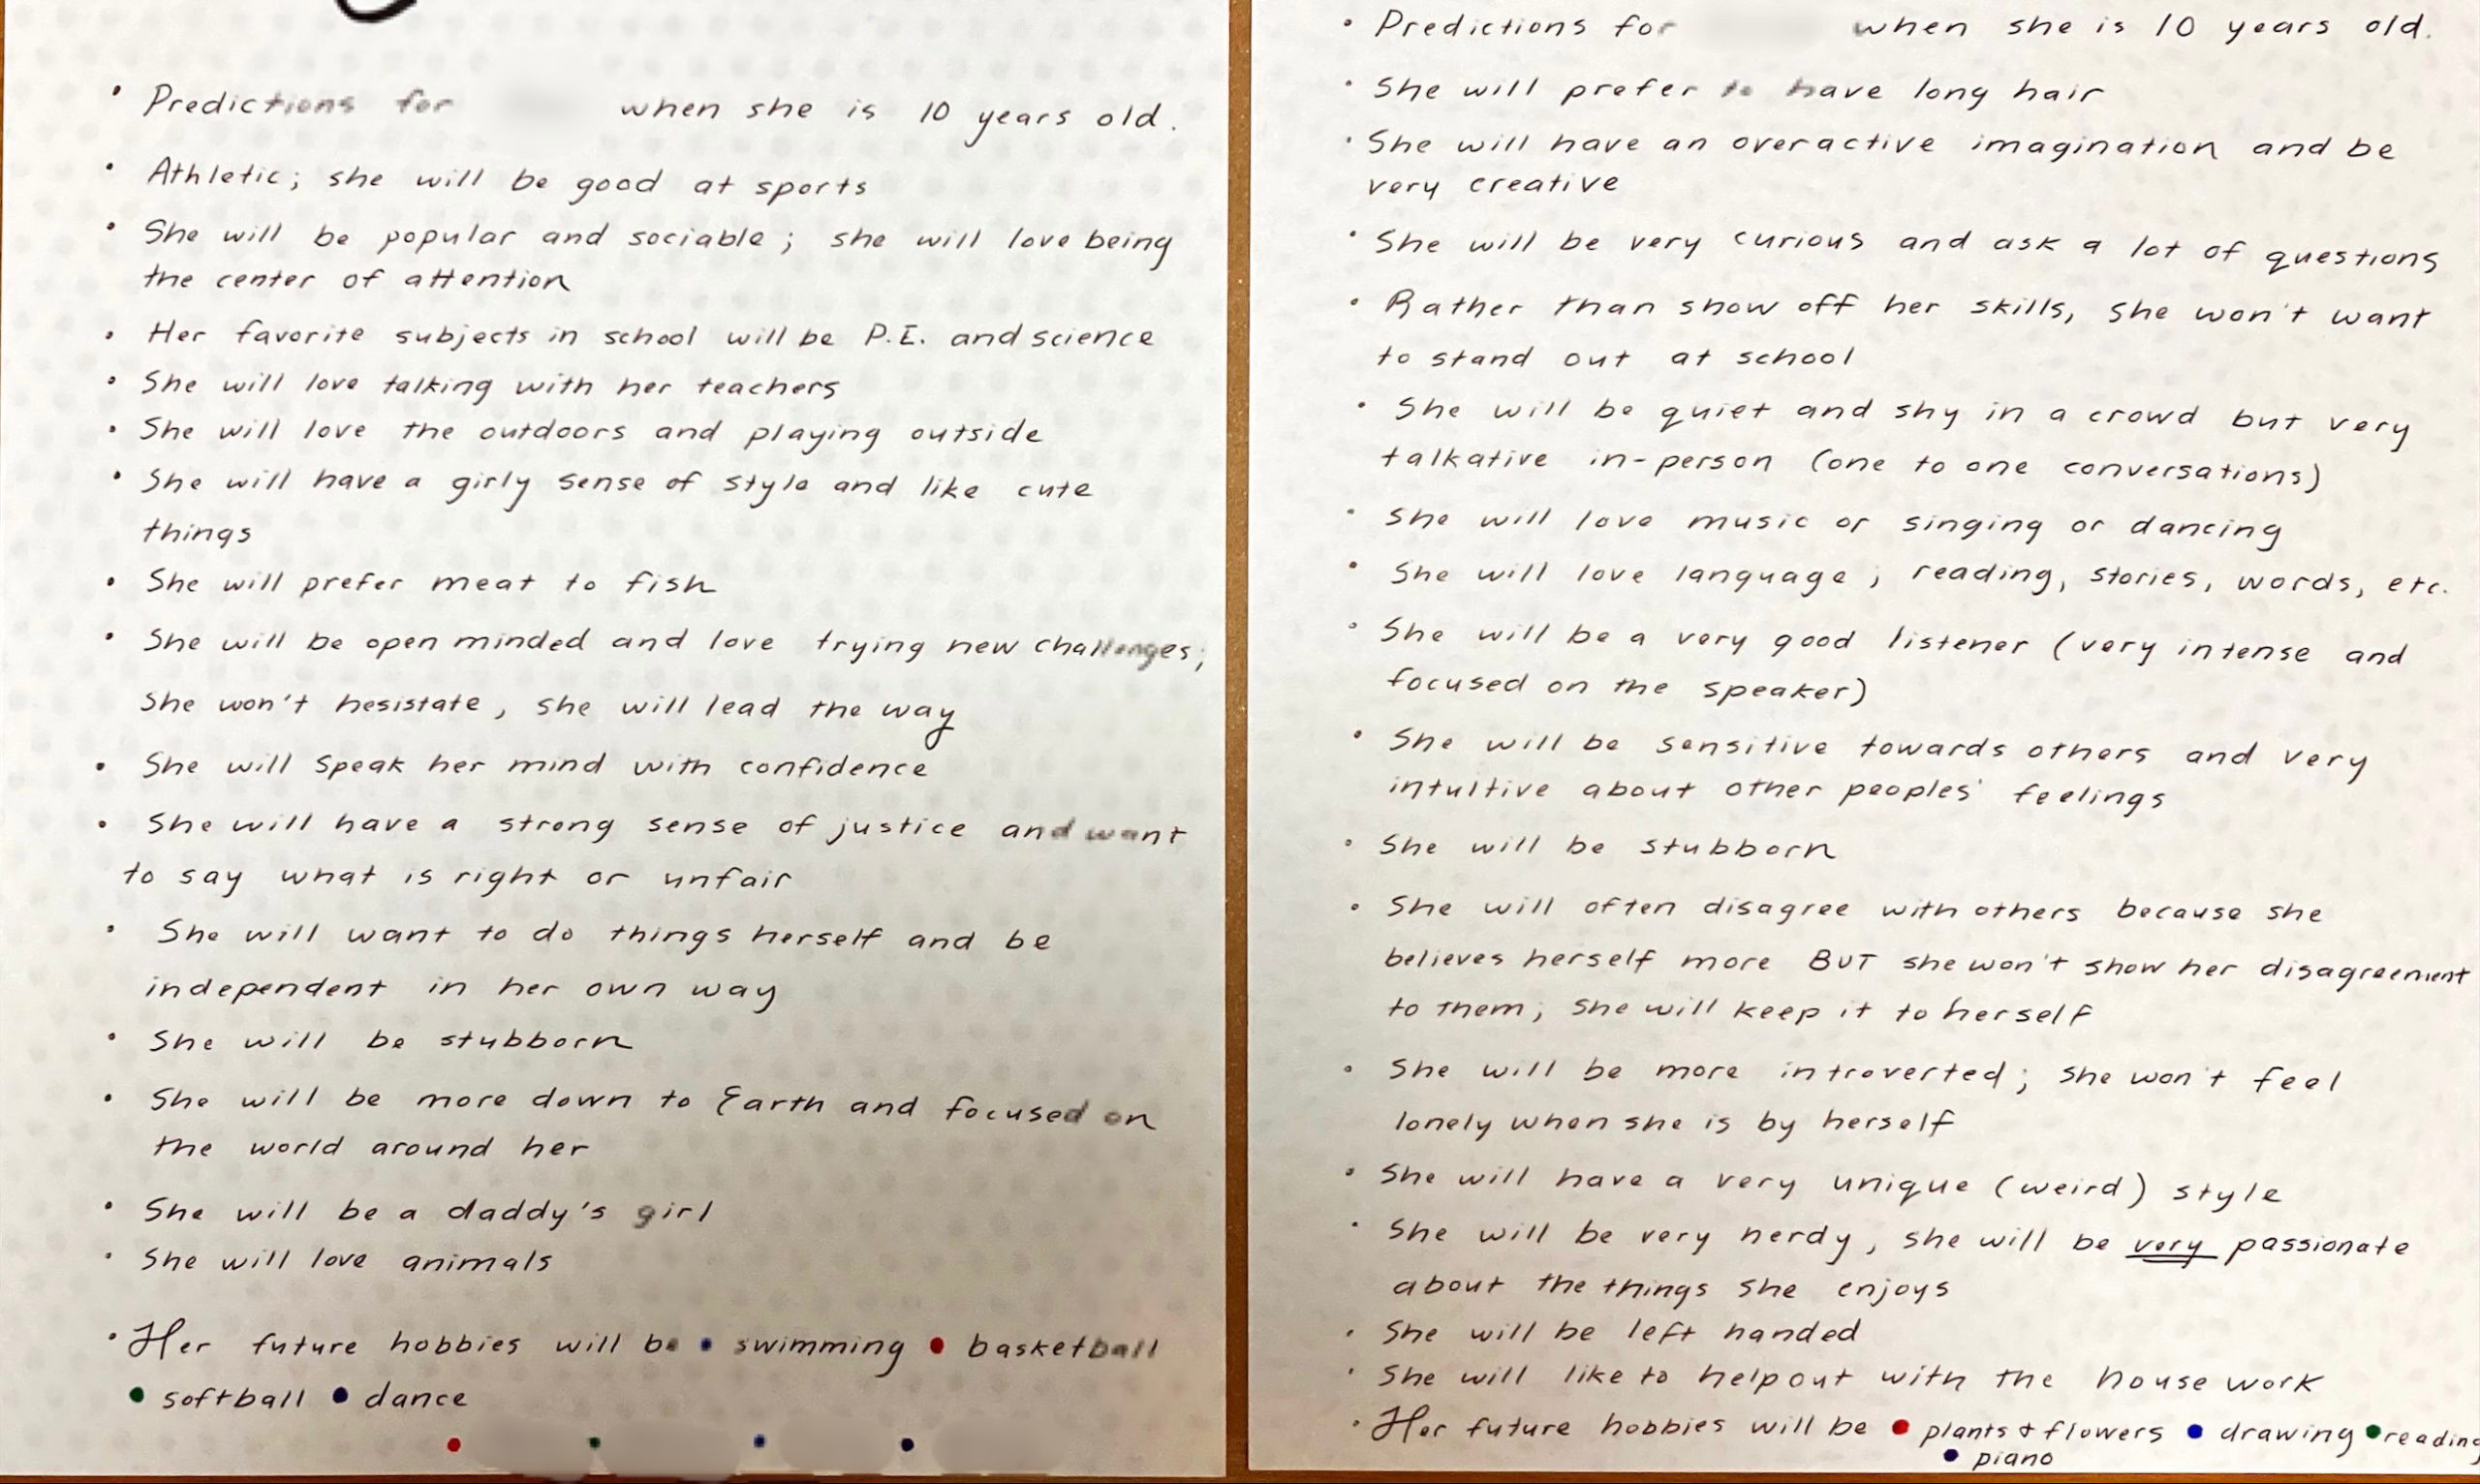 • Predictions for when she is 10 years old.
• Athletic; she will be good at sports
• She will be popular and sociable; she will love being
the center of attention
• Her favorite subjects in school will be P.E. and science
• She will love talking with her teachers
• She will love the outdoors and playing outside
• She will have a girly sense of style and like cute
things
• She will prefer meat to fish
• She will be open minded and love trying new challenges;
she won't hesistate, she will lead the way
• She will speak her mind with confidence
• She will have a strong sense of justice and want
to say what is right or unfair
• She will want to do things herself and be
independent in her own way
• She will be stubborn
• She will be more down to Earth and focused on
the world around her
• She will be a daddy's girl
• She will love animals
• Her future hobbies will be • swimming • basketball
• softball • dance
• Predictions for when she is 10 years old.
• She will prefer to have long hair
• She will have an overactive imagination and be
very creative
• She will be very curious and ask a lot of questions
• Rather than show off her skills, she won't want
to stand out at school
• She will be quiet and shy in a crowd but very
talkative in-person (one to one conversations)
• She will love music or singing or dancing
• She will love language; reading, stories, words, etc.
• She will be a very good listener (very intense and
focused on the speaker)
• She will be sensitive towards others and very
intuitive about other peoples' feelings
• She will be stubborn
• She will often disagree with others because she
believes herself more BUT she won't show her disagreement
to them; she will keep it to herself
• She will be more introverted; she won't feel
lonely when she is by herself
• She will have a very unique (weird) style
• She will be very nerdy, she will be very passionate
about the things she enjoys
• She will be left handed
• She will like to help out with the house work
• Her future hobbies will be • plants & flowers • drawing • reading
• piano